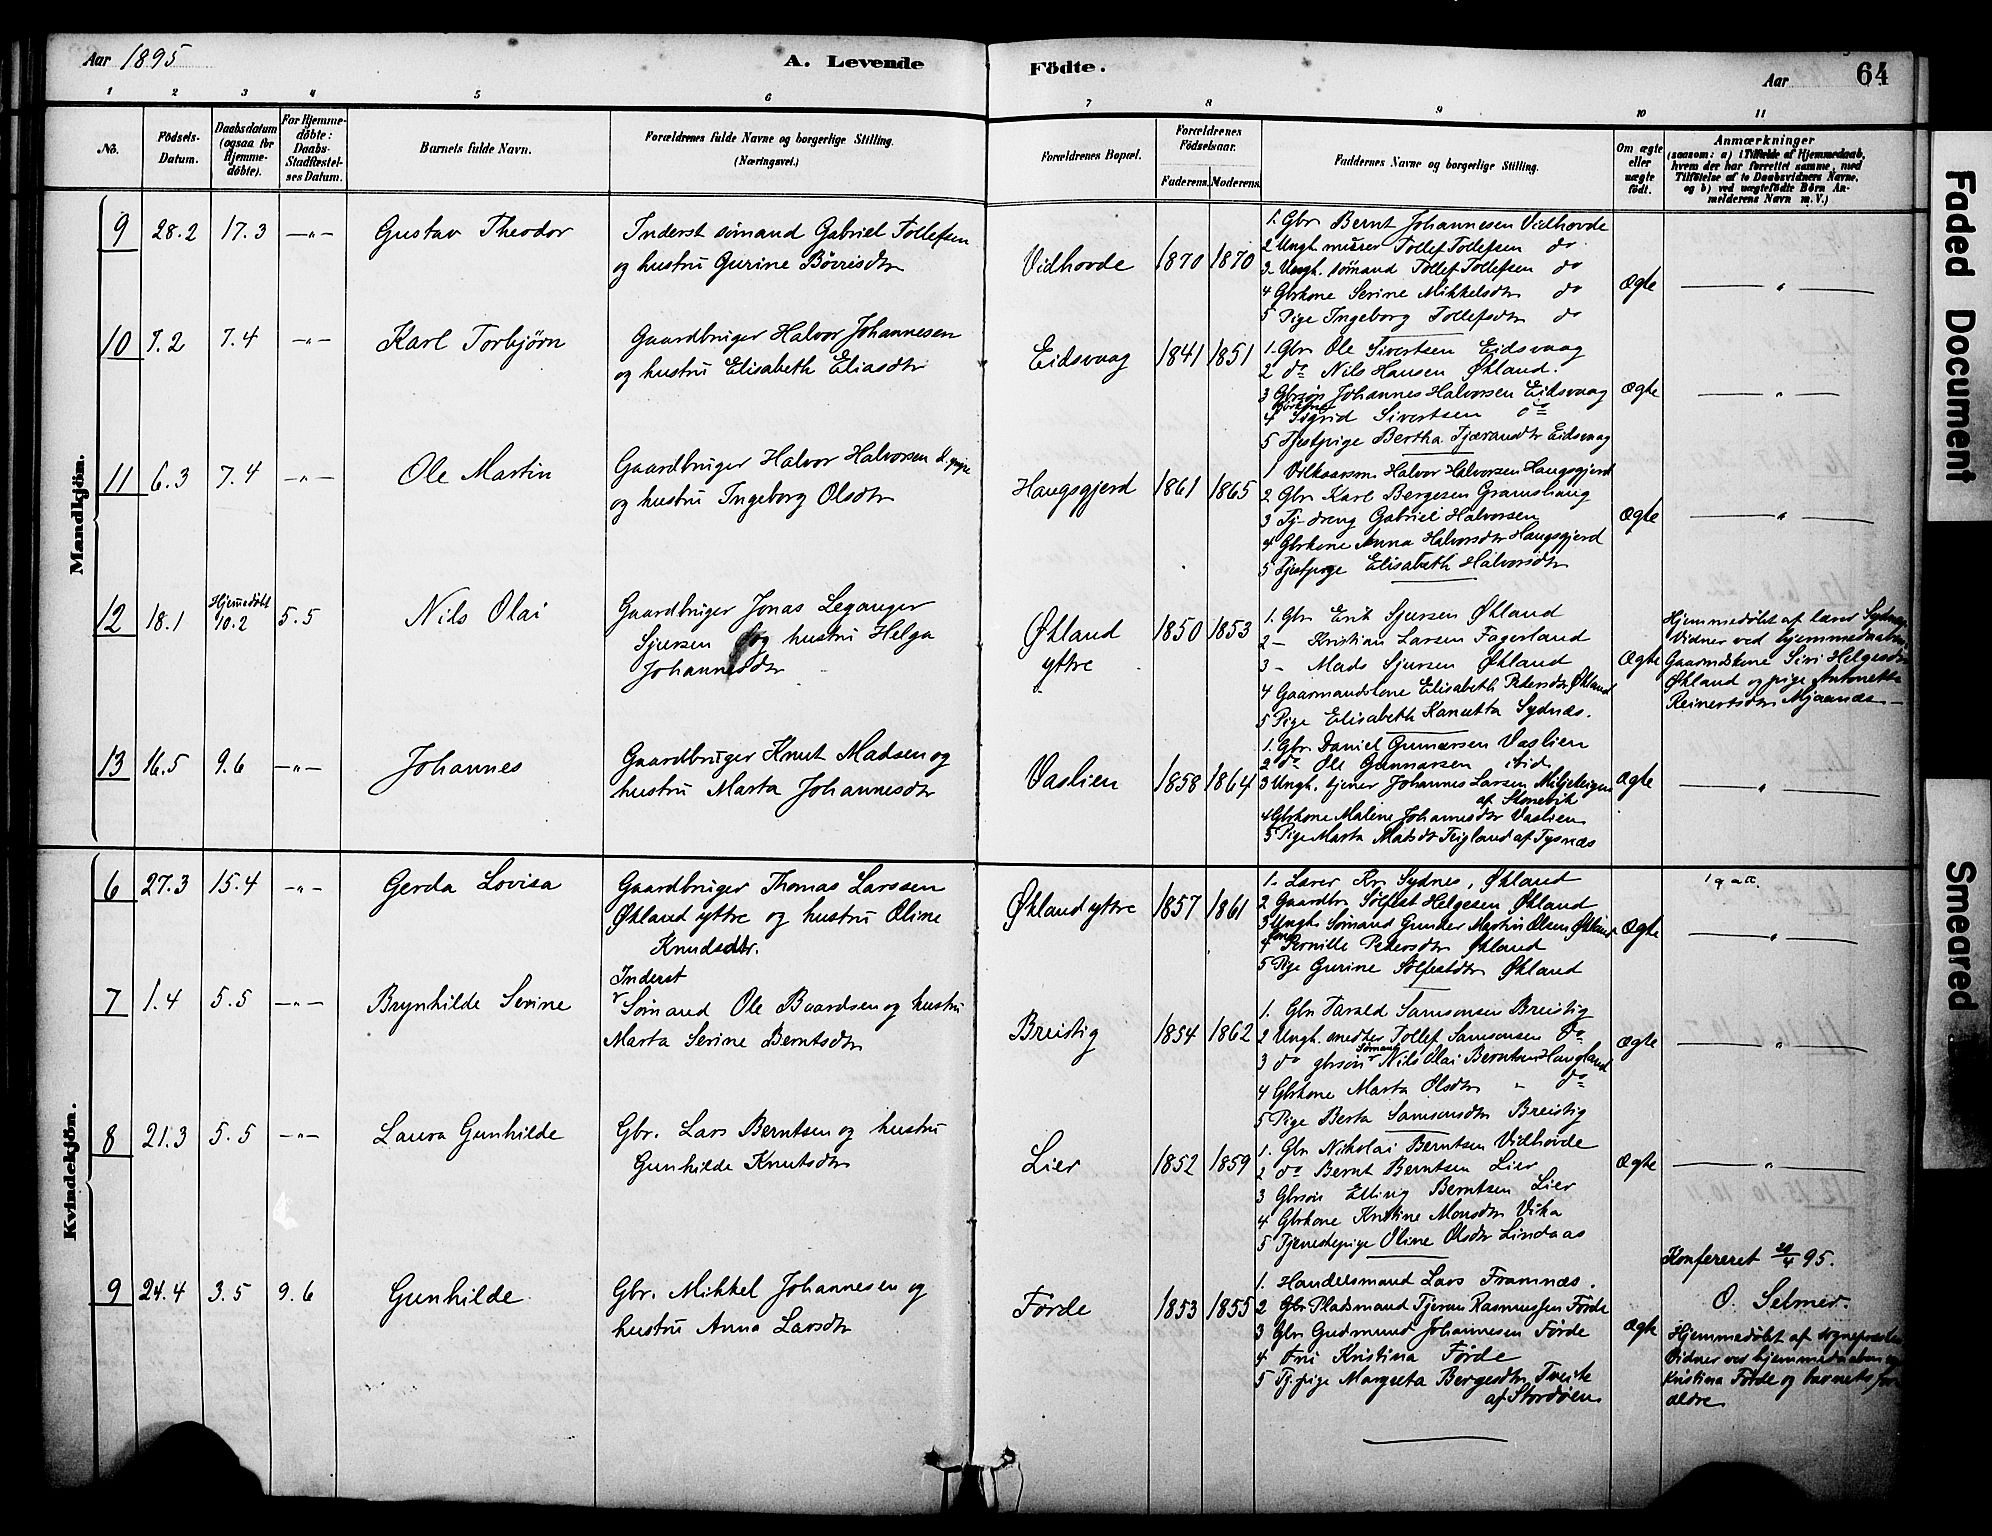 Aar 1895
A. Levende
Födte.
Aar
64
1 2 3 4 5 6 7 8 9 10 11
No.
Födsels-Datum.
Daabsdatum (ogsaa for Hjemme-döbte).
For Hjemme-döbte: Daabs-Stadfæstel-ses Datum.
Barnets fulde Navn.
Forældrenes fulde Navne og borgerlige Stilling.
(Næringsvei.)
Forældrenes Bopæl.
Forældrenes Födselsaar.
Faderens. Moderens.
Faddernes Navne og borgerlige Stilling.
Om ægte eller uægte födt.
Anmærkninger
(saasom: a) i Tilfælde af Hjemmedaab,
hvem der har forrettet samme, med
Tilföielse af to Daabsvidners Navne,
og b) ved uægtefödte Börn An-
melderens Navn m. V.)
Mandkjön.
9 28.2 17.3 —"— Gustav Theodor
Inderst sømand Gabriel Tollefsen
og hustru Gurine Børrisdtr
Vidhovde 1870 1870
1. Gbr Bernt Johannesen Vidhovde
2 Ungk. murer Tollef Tollefsen do
3 Ungk. sømand Tollef Tollefsen do
4 Gbrkone Serine Mikkelsdtr do
5 Pige Ingeborg Tollefsdtr do
Ægte — " —
10 7.2 7.4 —"— Karl Torbjørn
Gaardbruger Halvor Johannesen
og hustru Elisabeth Eliasdtr
Eidsvaag 1841 1851
1. Gbr Ole Sivertsen Eidsvaag
2 do Nils Hansen Økland.
3 Gbrsøn Johannes Halvorsen Eidsvaag
4 Sigrid Sivertsen do
5 Tjestpige Bertha Tjærandsdtr Eidsvaag
Ægte — " —
11 6.3 7.4 —"— Ole Martin
Gaardbruger Halvor Halvorsen d. yngre
og hustru Ingeborg Olsdtr
Haugsgjerd 1861 1865
1 Vilkaarsm. Halvor Halvorsen Haugsgjerd
2 Gbr Karl Bergesen Gramshaug
3 Tj-dreng Gabriel Halvorsen
4 Gbrkone Anna Halvorsdtr Haugsgjerd
5 Tjestpige Elisabeth Halvorsdtr
Ægte — " —
12 18.1 Hjemmedøbt 10.2 5.5 Nils Olai
Gaardbruger Jonas Leganger
Sjursen og hustru Helga
Johannesdtr
Økland
ytre
1850 1853
1. Gbr Erik Sjursen Økland
2 — Kristian Larsen Fagerland
3 — Mads Sjursen Økland
4 Gaarmandskone Elisabeth Pedersdtr Økland
5 Pige Elisabeth Kanutta Sydnæs.
Ægte
Hjemmedøbt af lærer Sydnæs
Vidner ved hjemmedaaben
Gaarmdskone Siri Helgesdtr
Økland og pige Antonetta
Reinertsdtr Mjaanæs —
13 16.5 9.6 —"— Johannes
Gaardbruger Knut Madsen og
hustru Marta Johannesdtr
Vaslien 1858 1864
1. Gbr Daniel Gunnarsen Vaslien
2 do Ole Gunnarsen ibid.
3 Ungk. tjener Johannes Larsen Miljeteigen
af Skonevik
4 Gbrkone Malene Johannesdtr Vaslien
5 Pige Marta Matsdtr Teigland af Tysnæs
Ægte — " —
Kvindekjön.
6 27.3 15.4 —"— Gerda Lovisa
Gaardbruger Thomas Larssen
Økland ytre og hustru Oline
Knudsdtr.
Økland ytre 1857 1861
1. Lærer Kr. Sydnes, Økland
2 Gaardbr Sølfest Helgesen Økland
3 Ungk. Sømand Gunder Martin Olsen Økland
4 Kone Pernille Pedersdtr Økland
5 Pige Gurine Sølfestdtr Økland
Ægte — " —
7 1.4 5.5 —"— Brynhilde Serine
Inderst
Sømand Ole Baardsen og hustru
Marta Serine Berntsdtr
Breistig 1854 1862
1. Gbr Tarald Samsonsen Breistig
2 Ungk. smed Tollef Samsonsen do
3 do gbrsøn Sømand Nils Olai Berntsen Haugland
4 Gbrkone Marta Olsdtr " do
5 Pige Berta Samsonsdtr Breistig
Ægte — " —
8 21.3 5.5 —"— Laura Gunhilde
Gbr. Lars Berntsen og hustru
Gunhilde Knutsdtr
Lier 1852 1859
1. Gbr Nikolai Berntsen Vidhovde
2 do Bernt Berntsen Lier
3 Gbrsøn Elling Berntsen Lier
4 Gbrkone Kristine Monsdtr Vika
5 Tjenestepige Oline Olsdtr Lindaas
Ægte — " —
Konfereret 30/4 95.
O. Selmer.
9 24.4 3.5 9.6 Gunhilde
Gbr. Mikkel Johannesen og
hustru Anna Larsdtr
Førde 1853 1855
1. Handelsmand Lars Framnæs.
2 Gbr Pladsmand Tjeran Rasmussen Førde
3 Gbr Gudmund Johannesen Førde
4 Fru Kristina Førde
5 Tj.pige Margreta Bergesdtr Tveite
af Stordøen
Ægte
Hjemmedøbt af sognepresten
Vidner ved hjemmedaaben
Kristina Førde og barnets for
ældre
Faded Document
Smeared